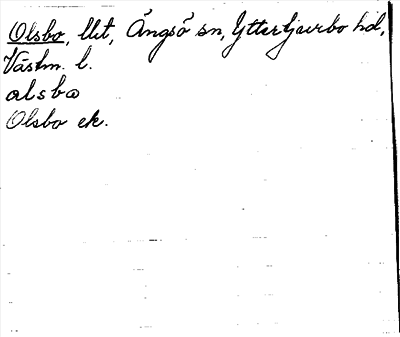 Olsbo, llt, Ängsö sn, Yttertjurbo hd,
Västm. l.
alsbo
Olsbo ek.